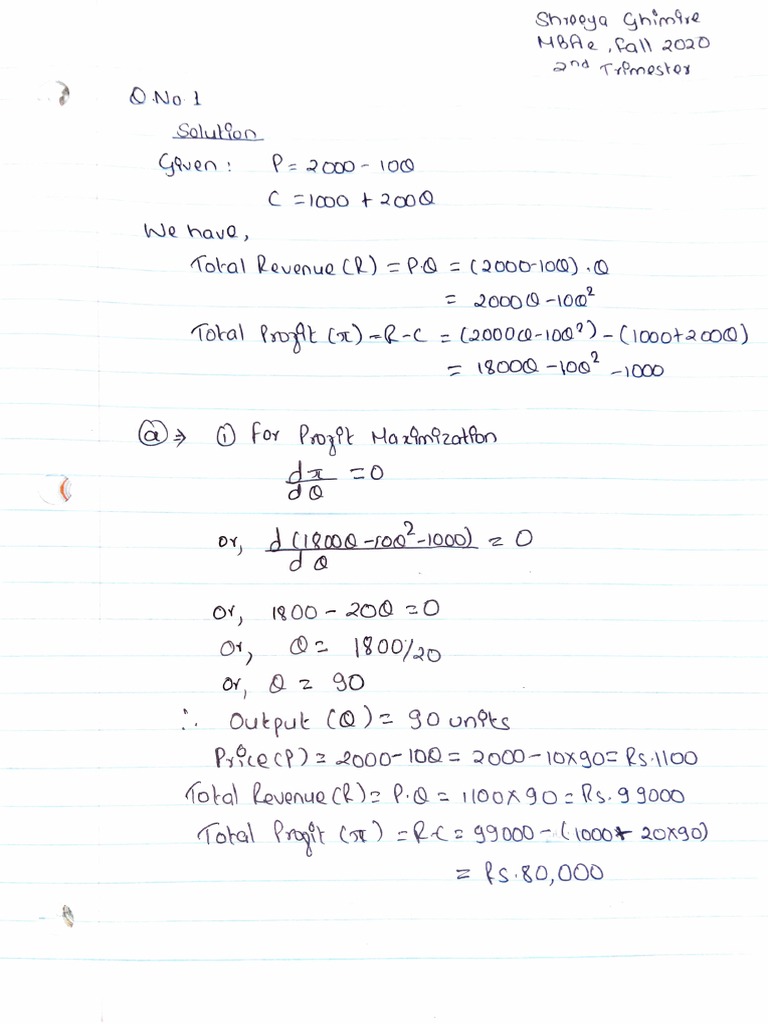 Shreeya Ghimire
MBAe, Fall 2020
2nd Trimester
Q.No.1
Solution
Given: P = 2000 - 10Q
C = 1000 + 200Q
We have,
Total Revenue (R) = P.Q = (2000-10Q).Q
= 2000Q - 10Q²
Total Profit (π) = R-C = (2000Q-10Q²) - (1000+200Q)
= 1800Q - 10Q² - 1000
ⓐ⇒ ① For Profit Maximization
dπ/dQ = 0
or, d(1800Q - 10Q² - 1000)/dQ = 0
or, 1800 - 20Q = 0
or, Q = 1800/20
or, Q = 90
∴ Output (Q) = 90 units
Price (P) = 2000 - 10Q = 2000 - 10×90 = Rs.1100
Total Revenue (R) = P.Q = 1100×90 = Rs.99000
Total Profit (π) = R-C = 99000 - (1000 + 20×90)
= Rs.80,000